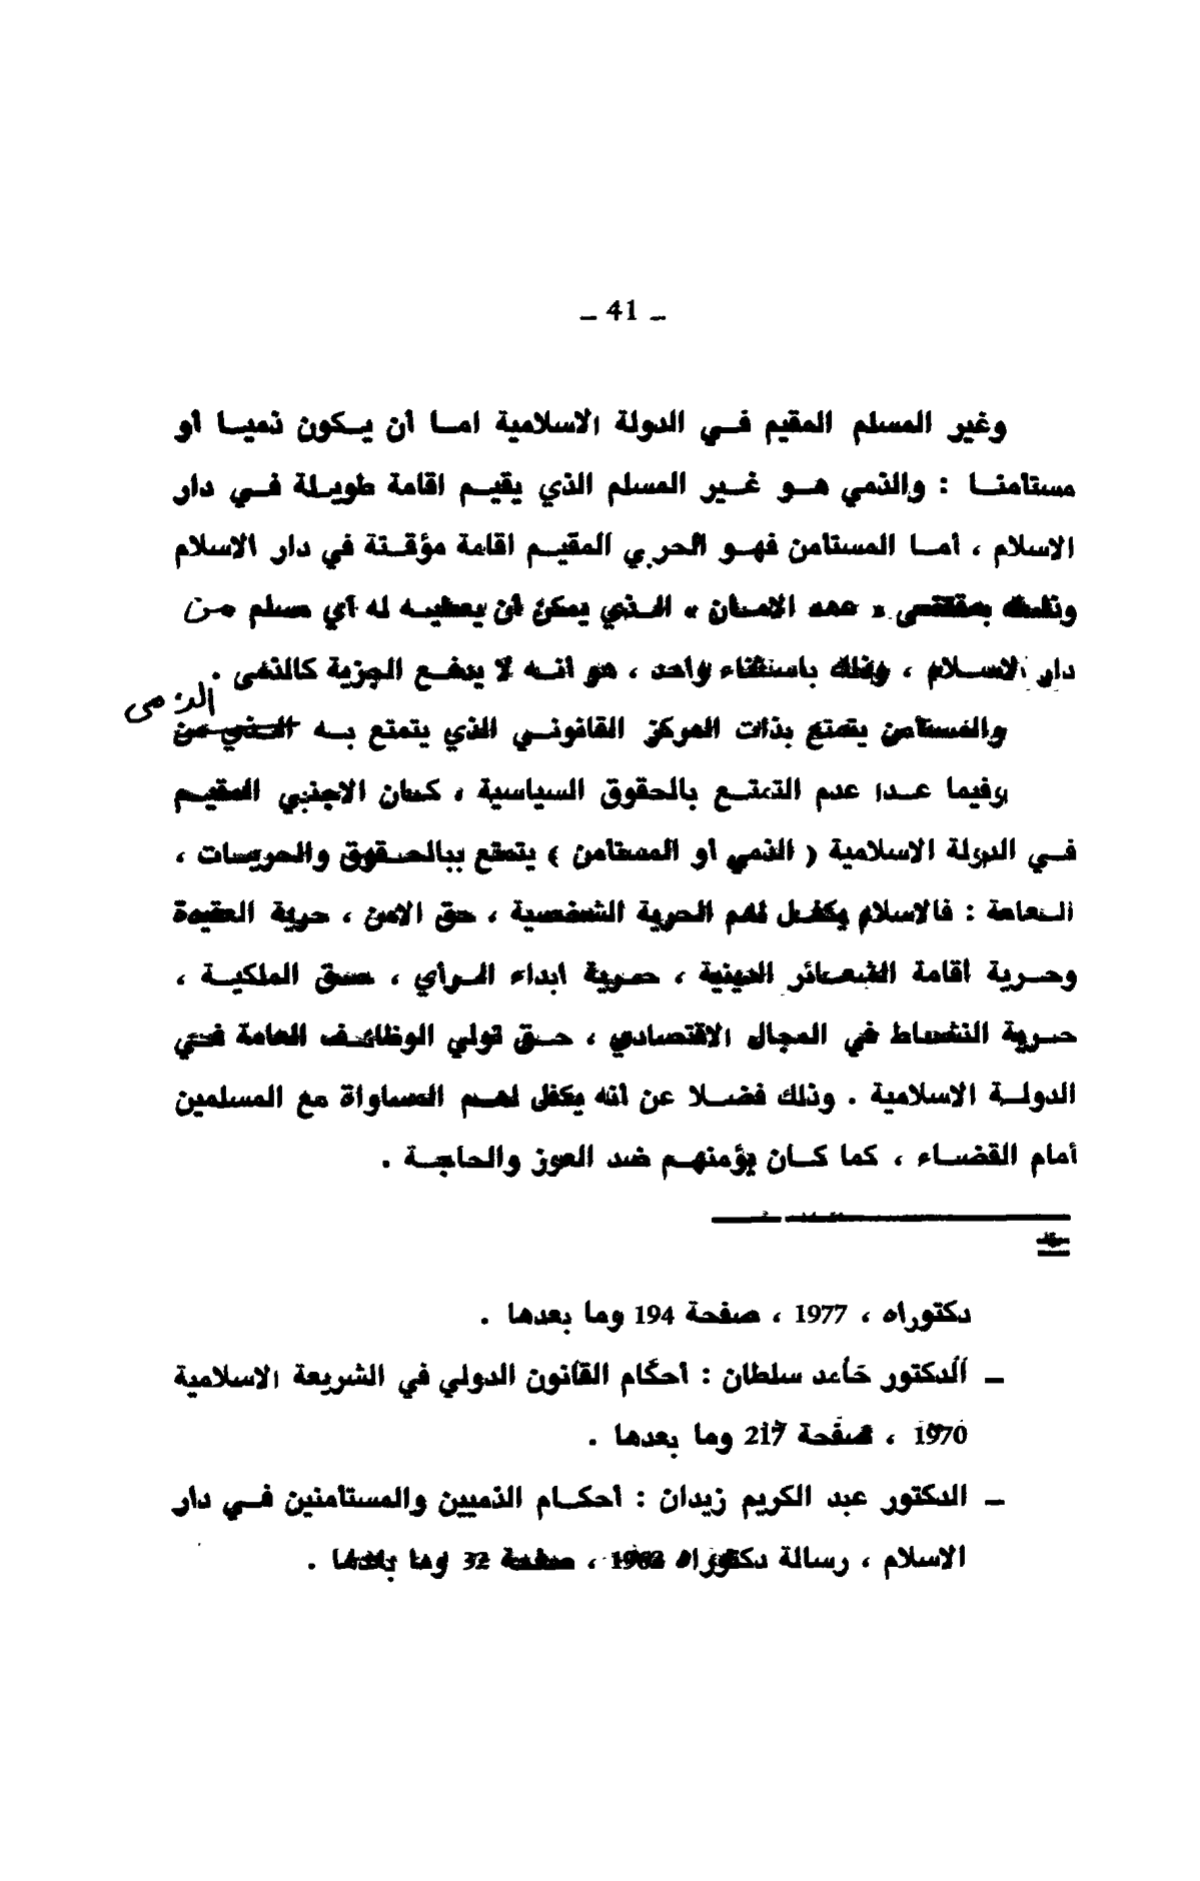 – 41 –
وغير المسلم المقيم فــي الدولة الاسلامية امــا أن يــكون ذميــا أو
مستامنــا : والذمي هــو غــير المسلم الذي يقيــم اقامة طويلة فــي دار
الاسلام ، أمــا المستامن فهــو الحربي المقيــم اقامة مؤقــتة في دار الاسلام
وذلك بمقتضى « عهد الامــان » الــذي يمكن أن يعطيــه له أي مسلم من
دار الاســلام ، وذلك باستثناء واحد ، هو انــه لا يدفــع الجزية كالذمى .
والمستأمن يتمتع بذات المركز القانونــي الذي يتمتع بــه الــذي من الذمى
وفيما عــدا عدم التمتــع بالحقوق السياسية ، كــان الاجنبي المقيــم
فــي الدولة الاسلامية ( الذمي أو المستأمن ) يتمتع ببالحــقوق والحريــات ،
الــعامة : فالاسلام يكفــل لهم الحرية الشخصية ، حق الامن ، حرية العقيدة
وحــرية اقامة الشعــائر الدينية ، حــرية ابداء الــرأي ، حــق الملكيــة ،
حــرية النشــاط في المجال الاقتصادي ، حــق تولي الوظائــف العامة فــي
الدولــة الاسلامية . وذلك فضــلا عن انه يكفل لهــم المساواة مع المسلمين
أمام القضــاء ، كما كــان يؤمنهــم ضد العوز والحاجــة .
دكتوراه ، 1977 ، صفحة 194 وما بعدها .
– الدكتور حامد سلطان : أحكام القانون الدولي في الشريعة الاسلامية
1970 ، صفحة 217 وما بعدها .
– الدكتور عبد الكريم زيدان : أحكــام الذميين والمستامنين فــي دار
الاسلام ، رسالة دكتوراه ، صفحة 32 وما بعدها .